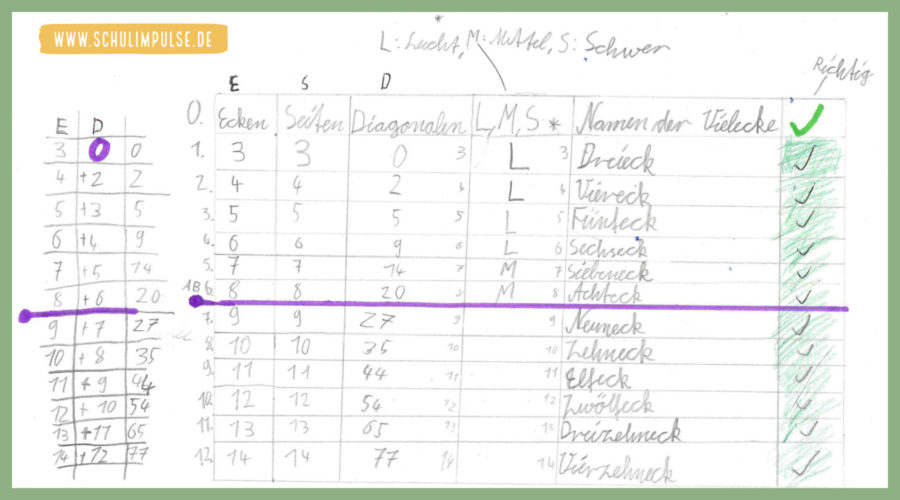 WWW.SCHULIMPULSE.DE
*
L: Leicht, M: Mittel, S: Schwer
Richtig
E S D
0. Ecken Seiten Diagonalen L, M, S * Namen der Vielecke ✓
1. 3 3 0 3 L 3 Dreieck ✓
2. 4 4 2 4 L 4 Viereck ✓
3. 5 5 5 5 L 5 Fünfeck ✓
4. 6 6 9 6 L 6 Sechseck ✓
5. 7 7 14 7 M 7 Siebeneck ✓
AB 6. 8 8 20 8 M 8 Achteck ✓
7. 9 9 27 9 9 Neuneck ✓
8. 10 10 35 10 10 Zehneck ✓
9. 11 11 44 11 11 Elfeck ✓
10. 12 12 54 12 12 Zwölfeck ✓
11. 13 13 65 13 13 Dreizehneck ✓
12. 14 14 77 14 14 Vierzehneck ✓
E D
3 0 0
4 +2 2
5 +3 5
6 +4 9
7 +5 14
8 +6 20
9 +7 27
10 +8 35
11 +9 44
12 +10 54
13 +11 65
14 +12 77